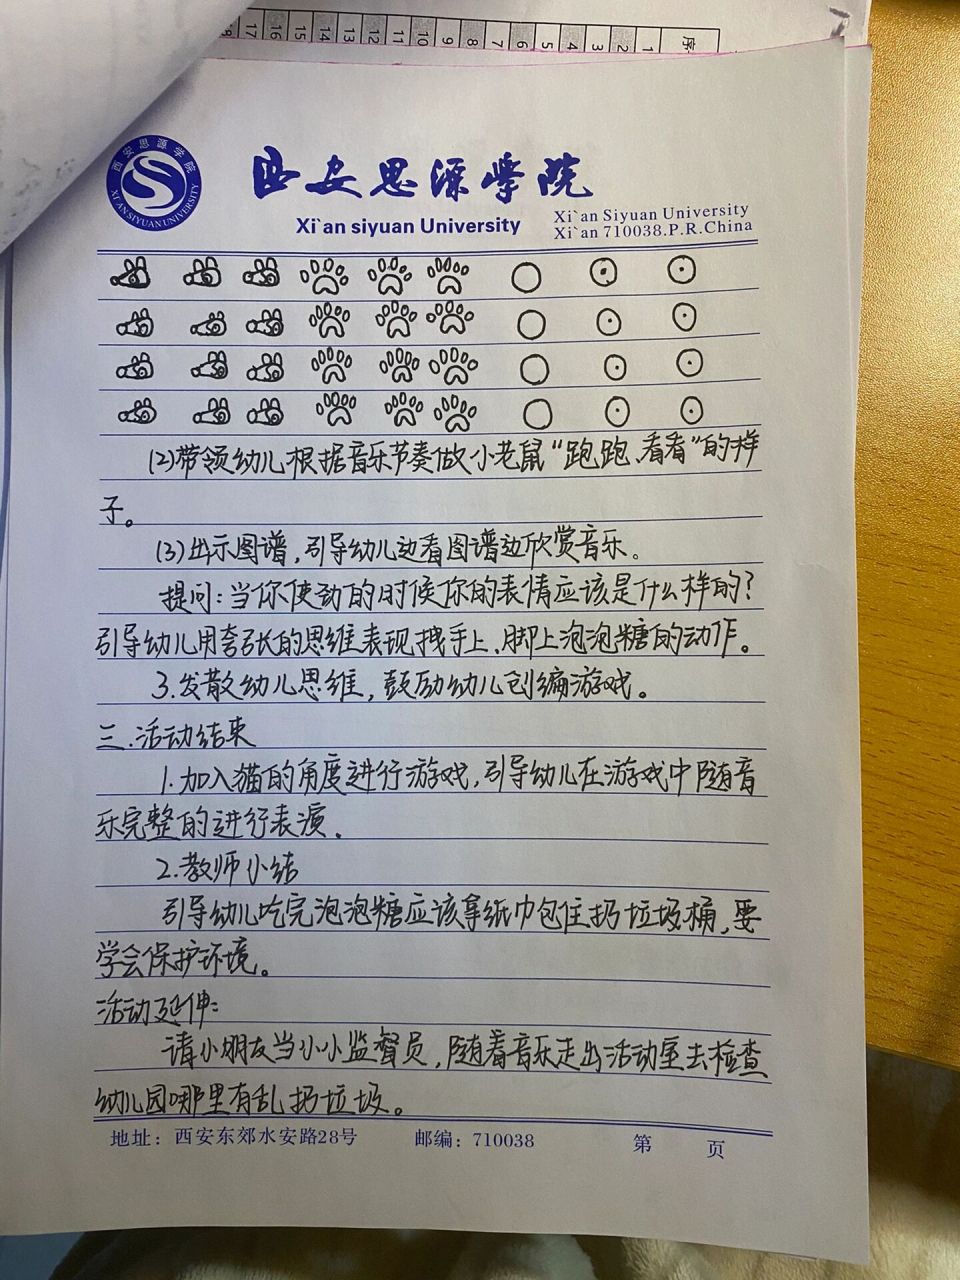 序
1
2
3
4
5
6
7
8
9
10
11
12
13
14
15
16
17
西安思源学院
XI'AN SIYUAN UNIVERSITY
西安思源学院
Xi`an siyuan University
Xi`an Siyuan University
Xi`an 710038.P.R.China
(2)带领幼儿根据音乐节奏做小老鼠“跑跑、看看”的样
子。
(3)出示图谱,引导幼儿边看图谱边欣赏音乐。
提问:当你使劲的时候你的表情应该是什么样的?
引导幼儿用夸张的思维表现拽手上、脚上泡泡糖的动作。
3.发散幼儿思维,鼓励幼儿创编游戏。
三.活动结束
1.加入猫的角度进行游戏,引导幼儿在游戏中随音
乐完整的进行表演.
2.教师小结
引导幼儿吃完泡泡糖应该拿纸巾包住扔垃圾桶,要
学会保护环境。
活动延伸:
请小朋友当小小监督员,随着音乐走出活动室去检查
幼儿园哪里有乱扔垃圾。
地址:西安东郊水安路28号 邮编:710038 第 页